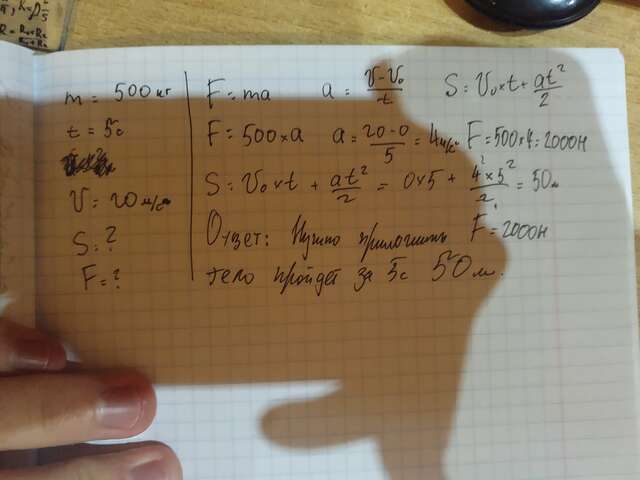 R = R₁+R₂
m = 500 кг
t = 5с
V = 20 м/с
S = ?
F = ?
F = ma a = V-V₀/t S = V₀×t + at²/2
F = 500×a a = 20-0/5 = 4м/с F = 500×4 = 2000Н
S = V₀×t + at²/2 = 0×5 + 4×5²/2 = 50м
Ответ: Нужно приложить F = 2000Н
тело пройдет за 5с 50м.